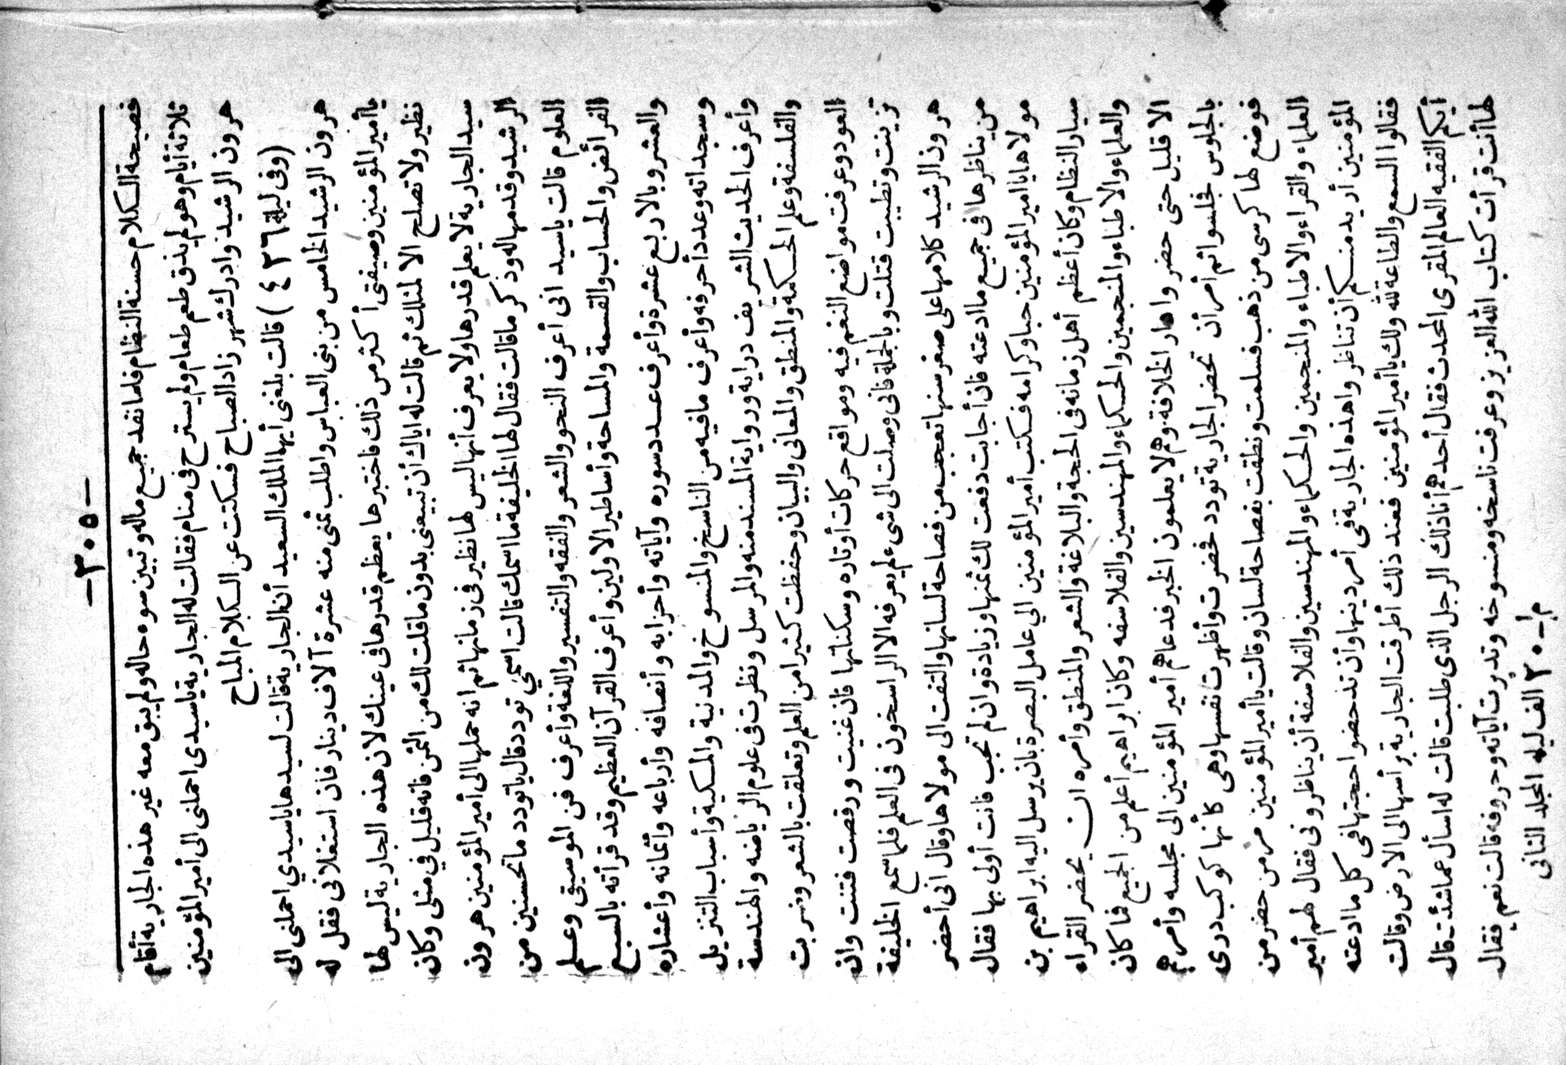 -٣٠٥-
فصيحة الكلام حسنة النظام فلما نفد جميع ماله وتبين سوء حاله ولم يبق معه غير هذه الجارية أقام
ثلاثة أيام وهو لم يذق طعم طعام ولم يسترح في منام فقالت له الجارية ياسيدى احملنى الى أمير المؤمنين
هرون الرشيد وادرك شهر زاد الصباح فسكتت عن الكلام المباح
(وفى ليلة ٤٣٦) قالت بلغنى أيها الملك السعيد أن الجارية قالت لسيدها ياسيدي احملنى الى
هرون الرشيد الخامس من بنى العباس واطلب ثمنى منه عشرة آلاف دينار فان استغلانى فقل له
يا أمير المؤمنين وصيفتى أكثر من ذلك فاختبرها يعظم قدرها فى عينك لان هذه الجارية ليس لها
نظير ولا تصلح الا لمثلك ثم قالت له اياك أن تبيعنى بدون ما قلت لك من الثمن فانه قليل في مثلى وكان
سيد الجارية لا يعلم قدرها ولا يعرف أنها ليس لها نظير فى زمانها ثم انه حملها الى أمير المؤمنين هرون
الرشيد وقدمها له وذكر ما قالت فقال لها الخليفة ما اسمك قالت اسمي تودد قال ياتودد ما تحسنين من
العلوم قالت ياسيد انى أعرف النحو والشعر والفقه والتفسير واللغة وأعرف فن الموسيقى وعلم
الفرائض والحساب والقسمة والمساحة وأساطير الاولين وأعرف القرآن العظيم وقد قرأته بالسبع
والعشر وبالاربع عشرة وأعرف عدد سوره وآياته وأحزابه وأنصافه وأرباعه وأثمانه وأعشاره
وسجداته وعدد أحرفه وأعرف مافيه من الناسخ والمنسوخ والمدنية والمكية وأسباب التنزيل
وأعرف الحديث الشريف دراية ورواية المسند منه والمرسل ونظرت فى علوم الرياضه والهندسة
والفلسفة وعلم الحكمة والمنطق والمعانى والبيان وحفظت كثيرا من العلم وتعلقت بالشعر وضربت
العود وعرفت مواضع النغم فيه ومواقع حركات أوتاره وسكناتها فان غنيت ورقصت فتنت وان
تزينت وتطيبت قتلت وبالجملة فانى وصلت الى شىء لم يعرفه الا الراسخون فى العلم فلما سمع الخليفة
هرون الرشيد كلامها على صغر سنها تعجب من فصاحة لسانها والتفت الى مولاها وقال انى أحضر
من يناظرها فى جميع ما ادعته فان أجابت دفعت لك ثمنها وزيادة وان لم تجب فانت أولى بها فقال
مولاها يا أمير المؤمنين حبا وكرامه فكتب أمير المؤمنين الي عامل البصرة بان يرسل اليه ابراهيم بن
سيار النظام وكان أعظم أهل زمانه فى الحجة والبلاغة والشعر والمنطق وأمره ان يحضر القراء
والعلماء والاطباء والمنجمين والحكماء والمهندسين والفلاسفه وكان ابراهيم أعلم من الجميع فما كان
الا قليل حتى حضروا دار الخلافة وهم لا يعلمون الخبر فدعاهم أمير المؤمنين الى مجلسه وأمرهم
بالجلوس فجلسوا ثم أمر أن تحضر الجارية تودد فحضرت وأظهرت نفسها وهى كأنها كوكب درى
فوضع لها كرسى من ذهب فسلمت ونطقت بفصاحة لسان وقالت يا أمير المؤمنين مر من حضر من
العلماء والقراء والاطباء والمنجمين والحكماء والمهندسين والفلاسفة أن يناظرونى فقال لهم أمير
المؤمنين أريد منكم أن تناظروا هذه الجارية فى أمر دينها وأن تدحضوا حجتها فى كل ما ادعته
فقالوا السمع والطاعة لله ولك يا أمير المؤمنين فعند ذلك أطرقت الجارية برأسها الى الارض وقالت
أيكم الفقيه العالم المقرى المحدث فقال أحدهم أنا ذلك الرجل الذى طلبت قالت له اسأل عما شئت قال
لها أنت قرأت كتاب الله العزيز وعرفت ناسخه ومنسوخه وتدبرت آياته وحروفه قالت نعم فقال
م-٢٠ الف ليله المجلد الثانى